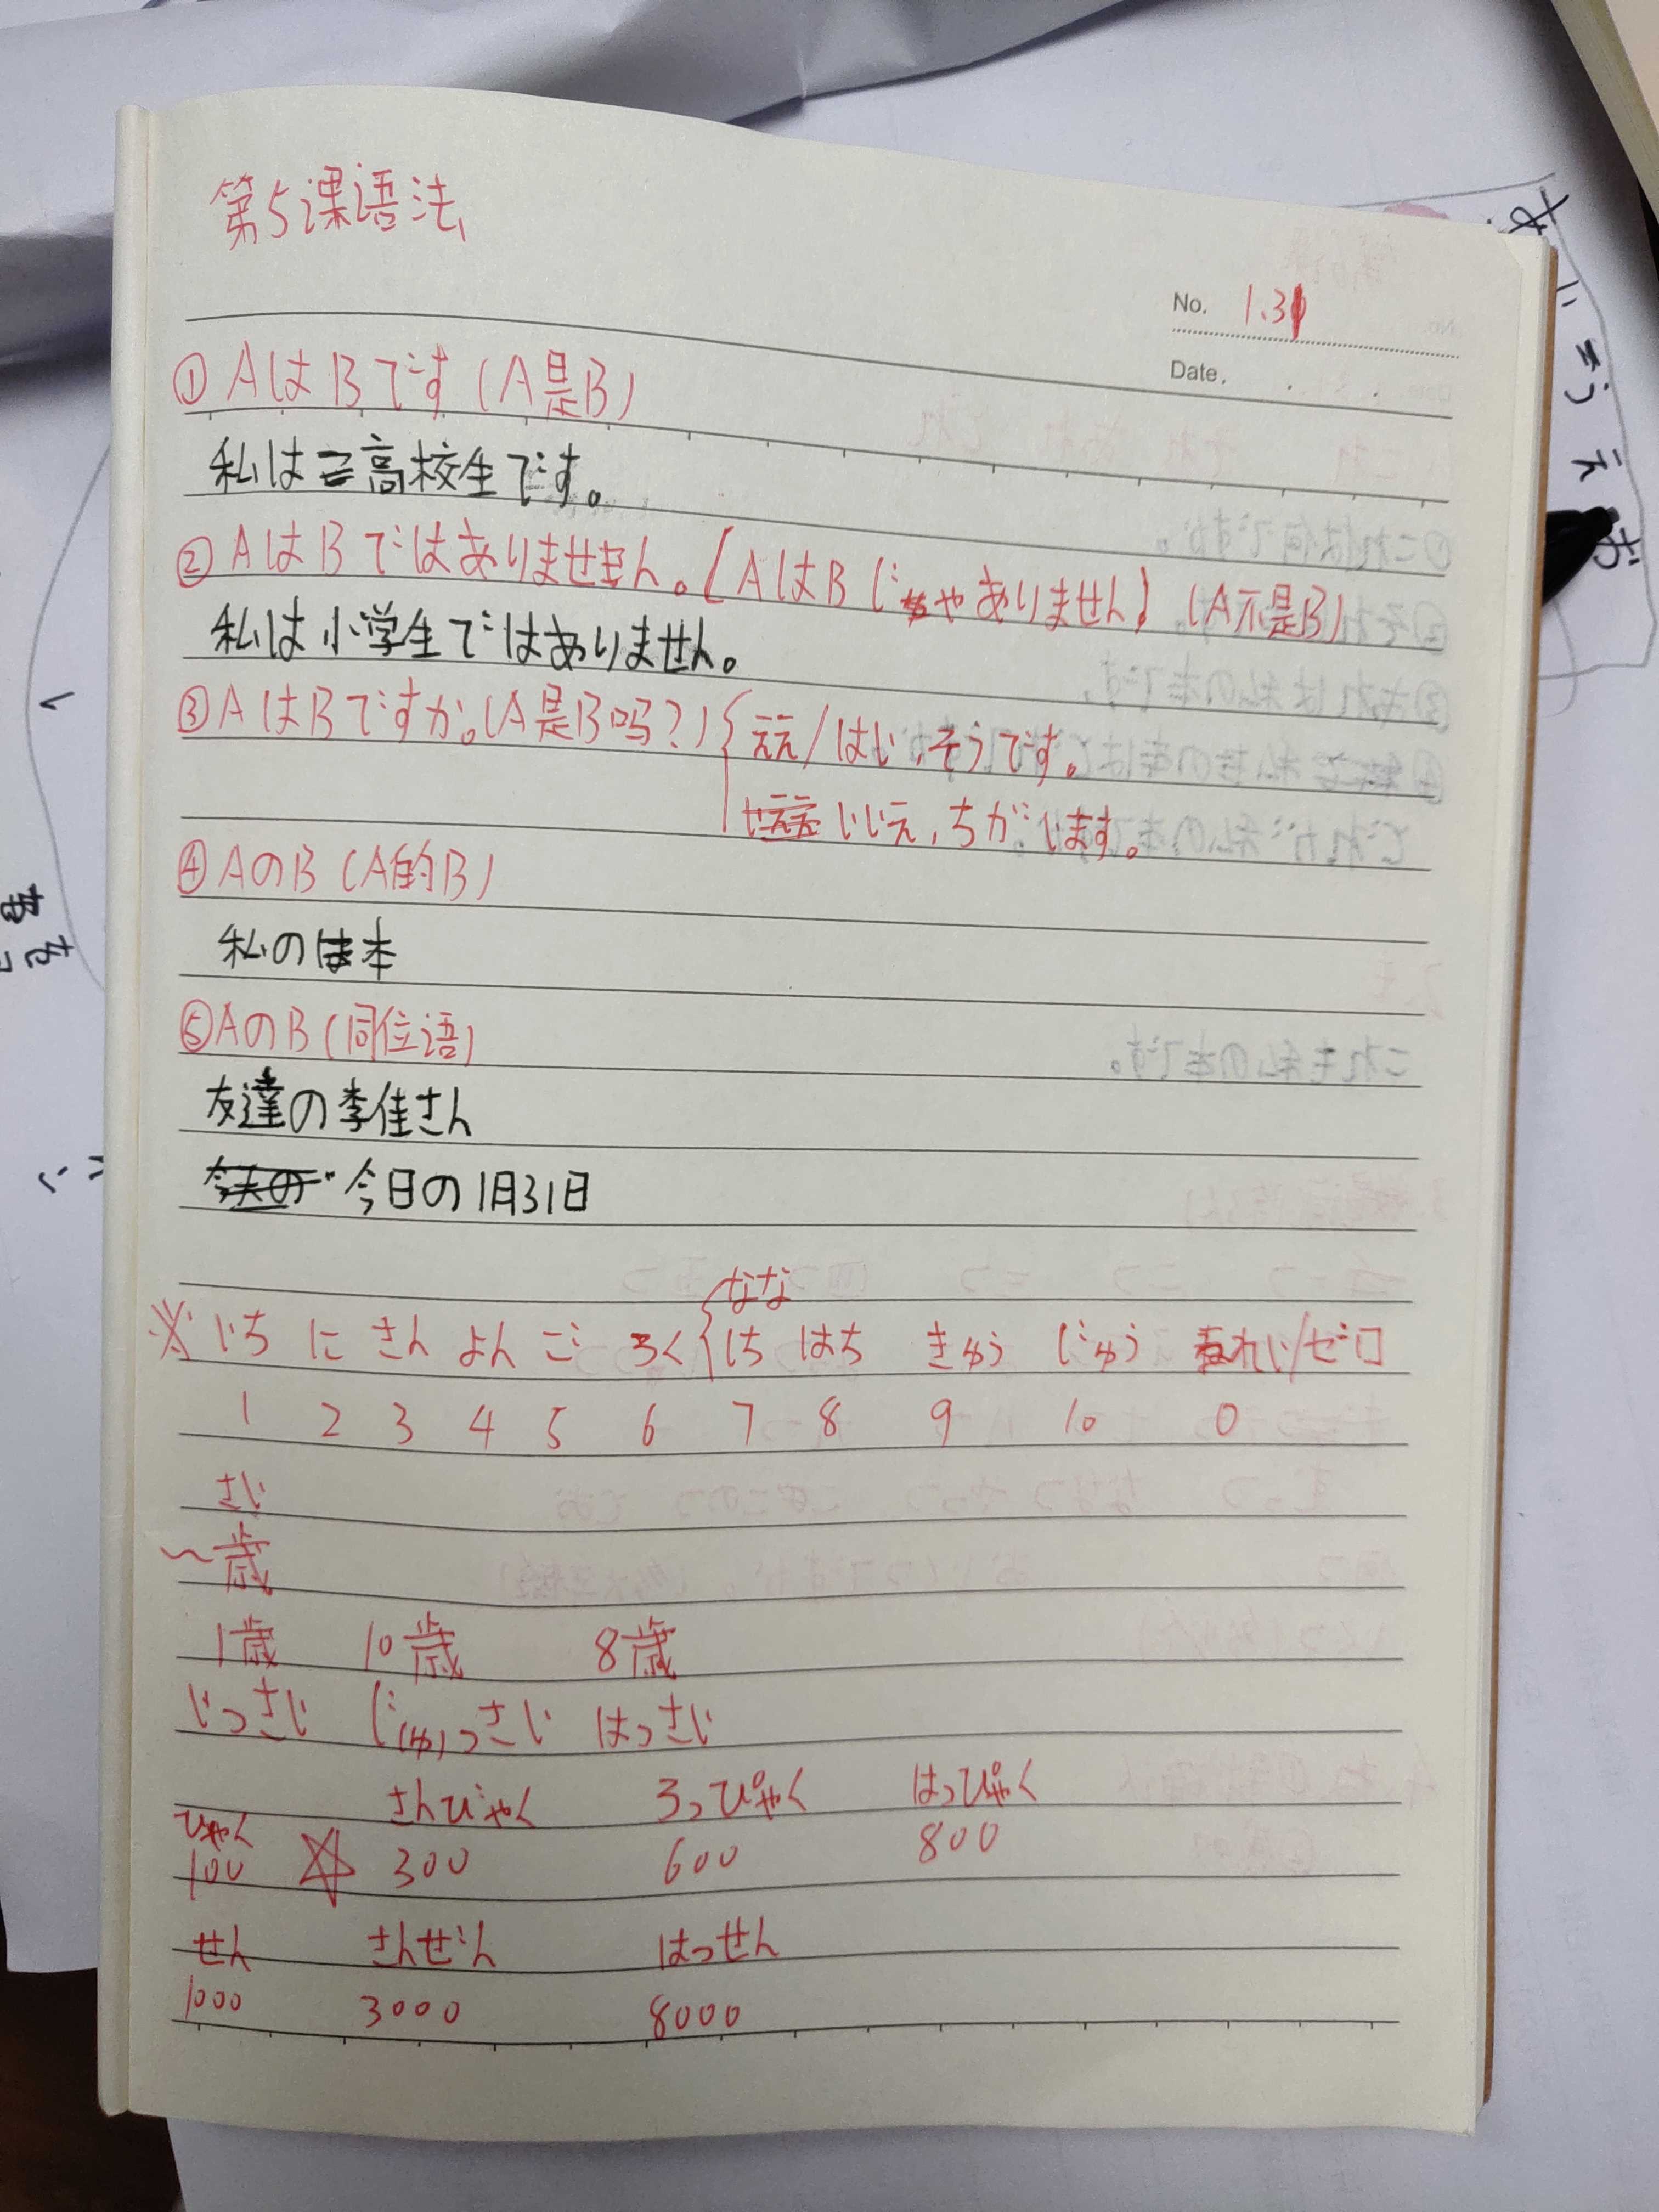 第5课语法
No. 1.31
Date.
①AはBです(A是B)
私は高校生です。
②AはBではありません。(AはBじゃありません)(A不是B)
私は小学生ではありません。
③AはBですか。(A是B吗?){ええ/はい,そうです。
いいえ,ちがいます。
④AのB(A的B)
私の本
⑤AのB(同位语)
友達の李佳さん
今日の1月31日
なな
※いち に さん よん ご ろく しち はち きゅう じゅう れい/ゼロ
1 2 3 4 5 6 7 8 9 10 0
さい
~歳
1歳 10歳 8歳
いっさい じ(ゅ)っさい はっさい
さんびゃく ろっぴゃく はっぴゃく
ひゃく
100 ☆ 300 600 800
せん さんぜん はっせん
1000 3000 8000
あ
い
う
え
お